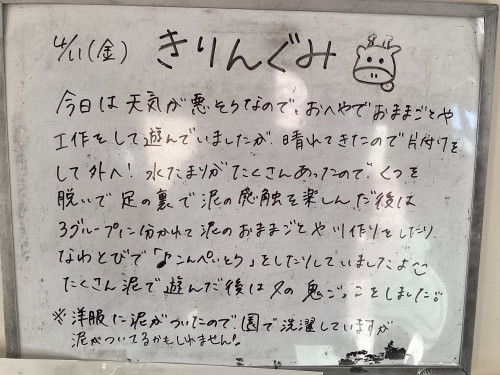 4/11(金) きりんぐみ
今日は天気が悪そうなので、おへやでおままごとや
工作をして遊んでいましたが、晴れてきたので片付けを
して外へ! 水たまりがたくさんあったので、くつを
脱いで足の裏で泥の感触を楽しんだ後は
3グループに分かれて泥のおままごとや川作りをしたり
なわとびで「♪こんぺいとう」をしたりしていましたよ
たくさん泥で遊んだ後は の鬼ごっこをしました!!
※洋服に泥がついたので、園で洗濯していますが
泥がついてるかもしれません!